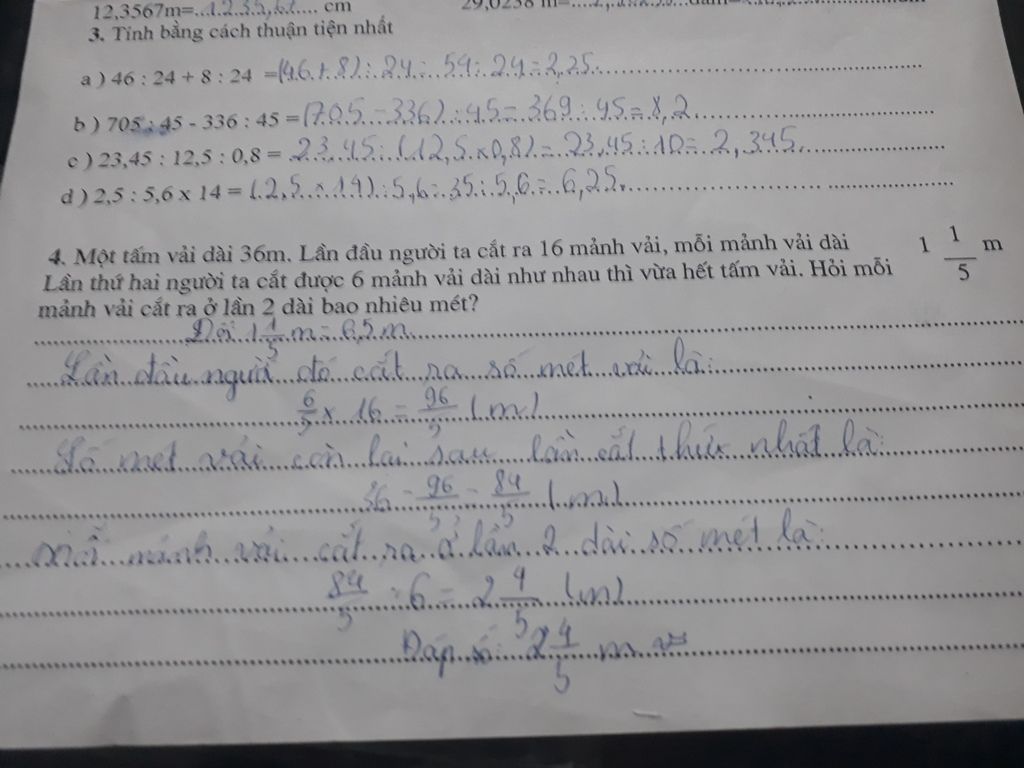 12,3567m=..1.2.3.5,67.... cm
3. Tính bằng cách thuận tiện nhất
a ) 46 : 24 + 8 : 24 = (46 + 8) : 24 = 54 : 24 = 2,25
b ) 705 : 45 - 336 : 45 = (705 - 336) : 45 = 369 : 45 = 8,2
c ) 23,45 : 12,5 : 0,8 = 23,45 : (12,5 x 0,8) = 23,45 : 10 = 2,345
d ) 2,5 : 5,6 x 14 = (2,5 x 14) : 5,6 = 35 : 5,6 = 6,25
4. Một tấm vải dài 36m. Lần đầu người ta cắt ra 16 mảnh vải, mỗi mảnh vải dài 1 1/5 m
Lần thứ hai người ta cắt được 6 mảnh vải dài như nhau thì vừa hết tấm vải. Hỏi mỗi
mảnh vải cắt ra ở lần 2 dài bao nhiêu mét?
Đổi 1 1/5 m =
Lần đầu người đó cắt ra số mét vải là:
6/5 x 16 = 96/5 (m)
Số mét vải còn lại sau lần cắt thứ nhất là:
36 - 96/5 = 84/5 (m)
Mỗi mảnh vải cắt ra ở lần 2 dài số mét là:
84/5 : 6 = 2 4/5 (m)
Đáp số: 2 4/5 m